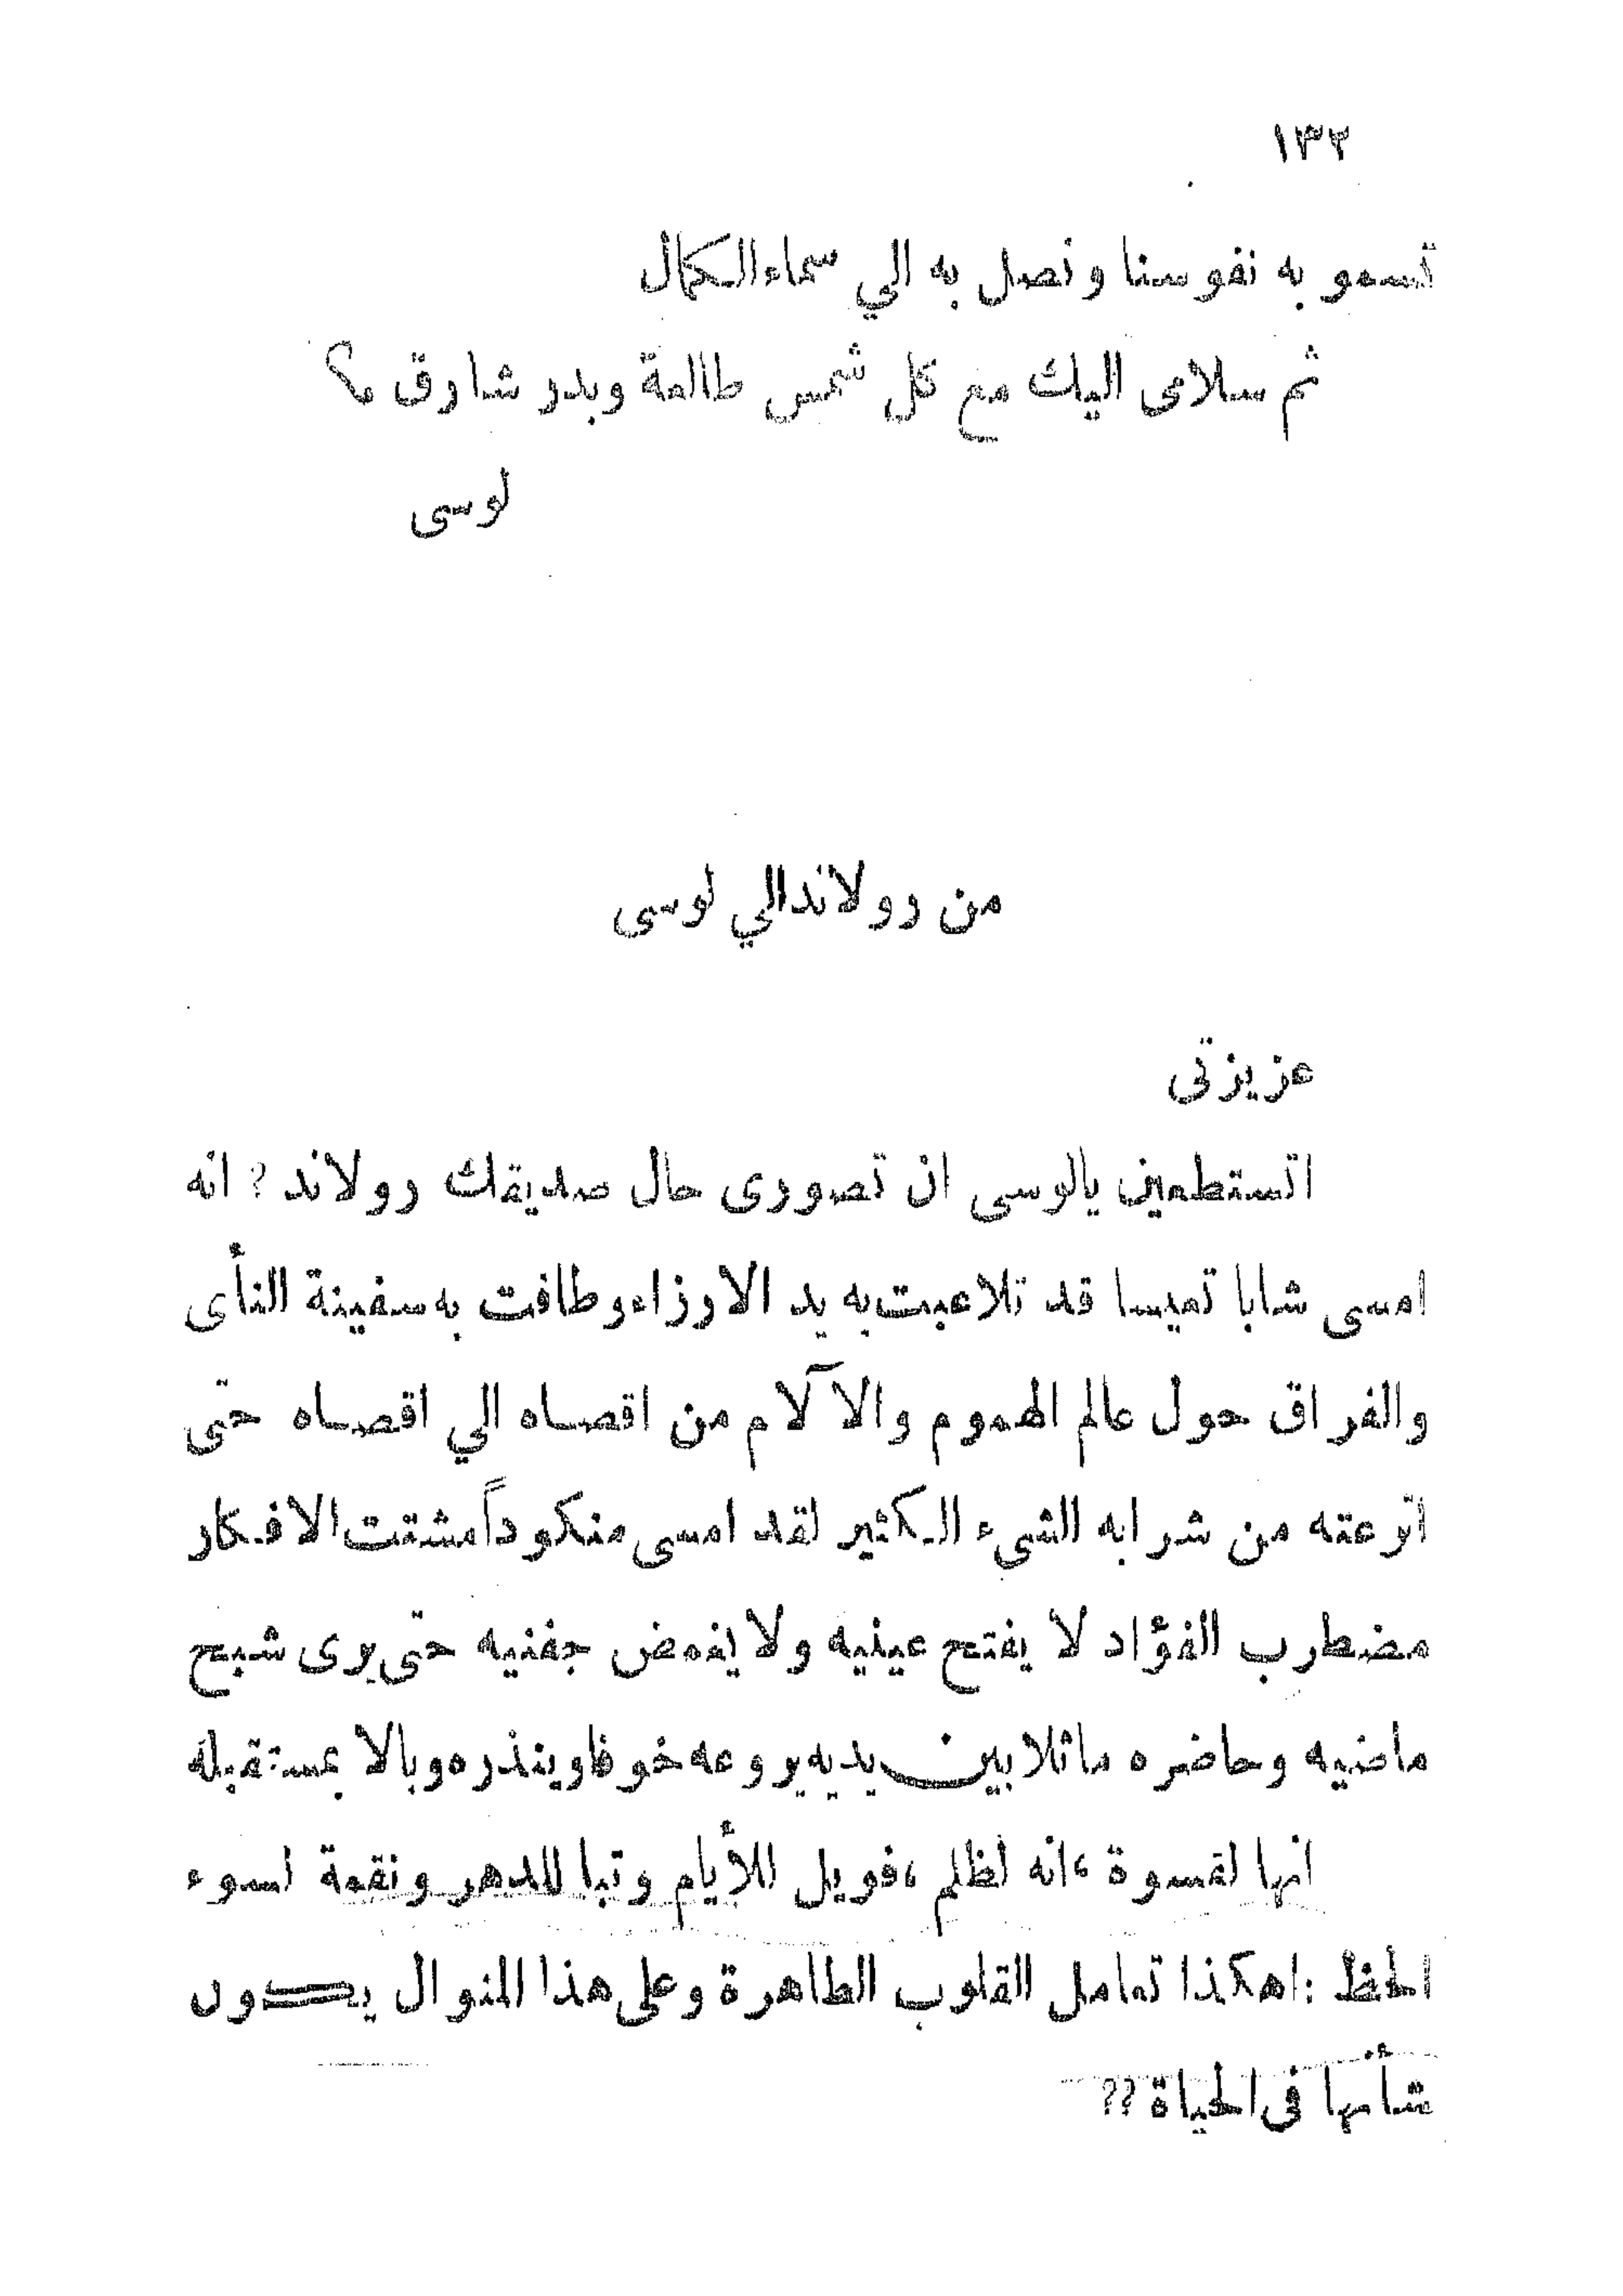 ١٣٢
تسمو به نفوسنا ونصل به الي سماء الكمال
ثم سلامى اليك مع كل شمس طالعة وبدر شارق
لوسى
من رولاند الي لوسى
عزيزتى
اتستطعين يالوسى ان تصورى حال صديقك رولاند ? انه
امسى شابا تعيسا قد تلاعبت به يد الارزاء وطافت به سفينة النأى
والفراق حول عالم الهموم والآلام من اقصاه الي اقصاه حتى
اترعته من شرابه الشىء الكثير لقد امسى منكوداً مشتت الافكار
مضطرب الفؤاد لا يفتح عينيه ولا يغمض جفنيه حتى يرى شبح
ماضيه وحاضره ماثلا بين يديه يروعه خوفا وينذره وبالا بمستقبله
انها لقسوة ، انه لظلم ، فويل للأيام وتبا للدهر ونقمة لسوء
الحظ : اهكذا تعامل القلوب الطاهرة وعلى هذا المنوال يكون
شأنها فى الحياة ??